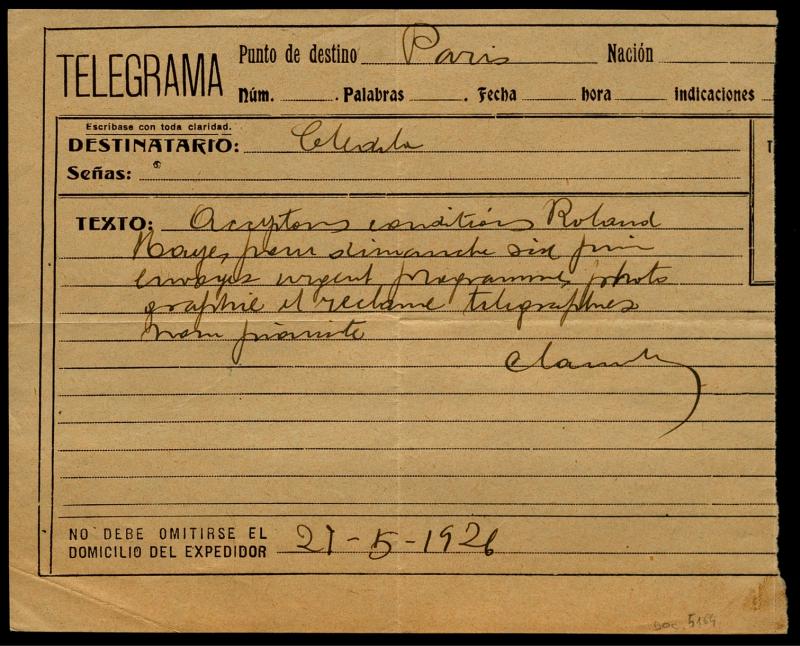 TELEGRAMA
Punto de destino Paris Nación
Núm. . Palabras . Fecha hora indicaciones
Escríbase con toda claridad.
DESTINATARIO:
Señas:
T
TEXTO: Acceptons conditions Roland
Hayes pour dimanche six juin
envoyez urgent programmes photo
graphie et réclame telegraphies
nom pianiste
NO DEBE OMITIRSE EL
DOMICILIO DEL EXPEDIDOR 27-5-1926
DOC. 5164